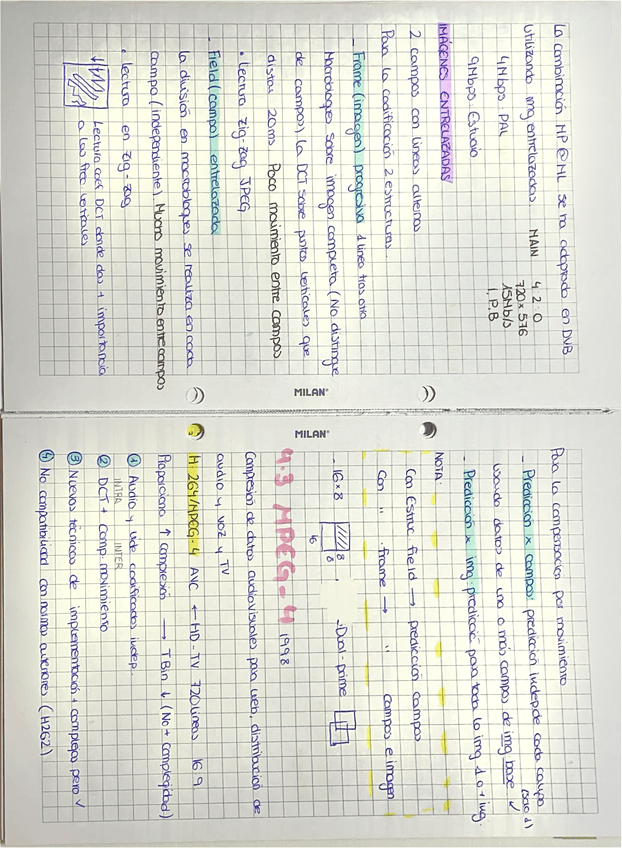 La combinación MP@ML se ha adoptado en DVB
utilizando img entrelazadas MAIN 4:2:0
4Mbps PAL 720x576
9Mbps Estudio 15Mb/s
I,P,B
IMÁGENES ENTRELAZADAS
2 campos con líneas alternas
Para la codificación 2 estructuras.
- Frame (imagen) progresiva 1 línea tras otra
Macrobloque sobre imagen completa (No distingue
de campos) la DCT sobre puntos verticales que
distan 20ms Poco movimiento entre campos
• Lectura zig-zag JPEG
- Field (campo) entrelazada
la división en macrobloques se realiza en cada
campo (independiente). Mucho movimiento entre campos
• lectura en zig-zag
Lectura coef DCT donde das + importancia
a las frec verticales
MILAN®
MILAN®
Para la compensación por movimiento
- Predicción x campos: predicción indep de cada campo
usando datos de uno o más campos de img base (solo 1) ✓
- Predicción x img: predicción para toda la img 1 o + img.
NOTA:
Con Estruc field → predicción campos
Con " frame → " campos e imagen
- 16x8 8 8 16 - Dual-prime
4.3 MPEG-4 1998
Compresión de datos audiovisuales para web, distribución de
audio y voz y TV
H.264/MPEG-4 AVC ← HD-TV 720 líneas 16:9
Proporciona ↑ compresión → TBin ↓ (No + complejidad)
① Audio y vide codificados indep.
INTRA INTER
② DCT + Comp. movimiento
③ Nuevas técnicas de implementación + complejas pero ✓
④ No compatibilidad con normas anteriores (H262)